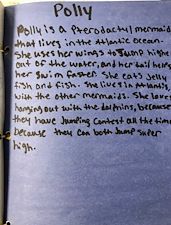 Polly
Polly is a Pterodactyl mermaid
that lives in the Atlantic Ocean.
She uses her wings to Jump higher
out of the water, and her tail helps
her swim faster. She eats Jelly
fish and fish. She lives in Atlantis
with the other mermaids. She loves
hanging out with the dolphins, because
they have Jumping Contest all the time
because they can both Jump super
high.